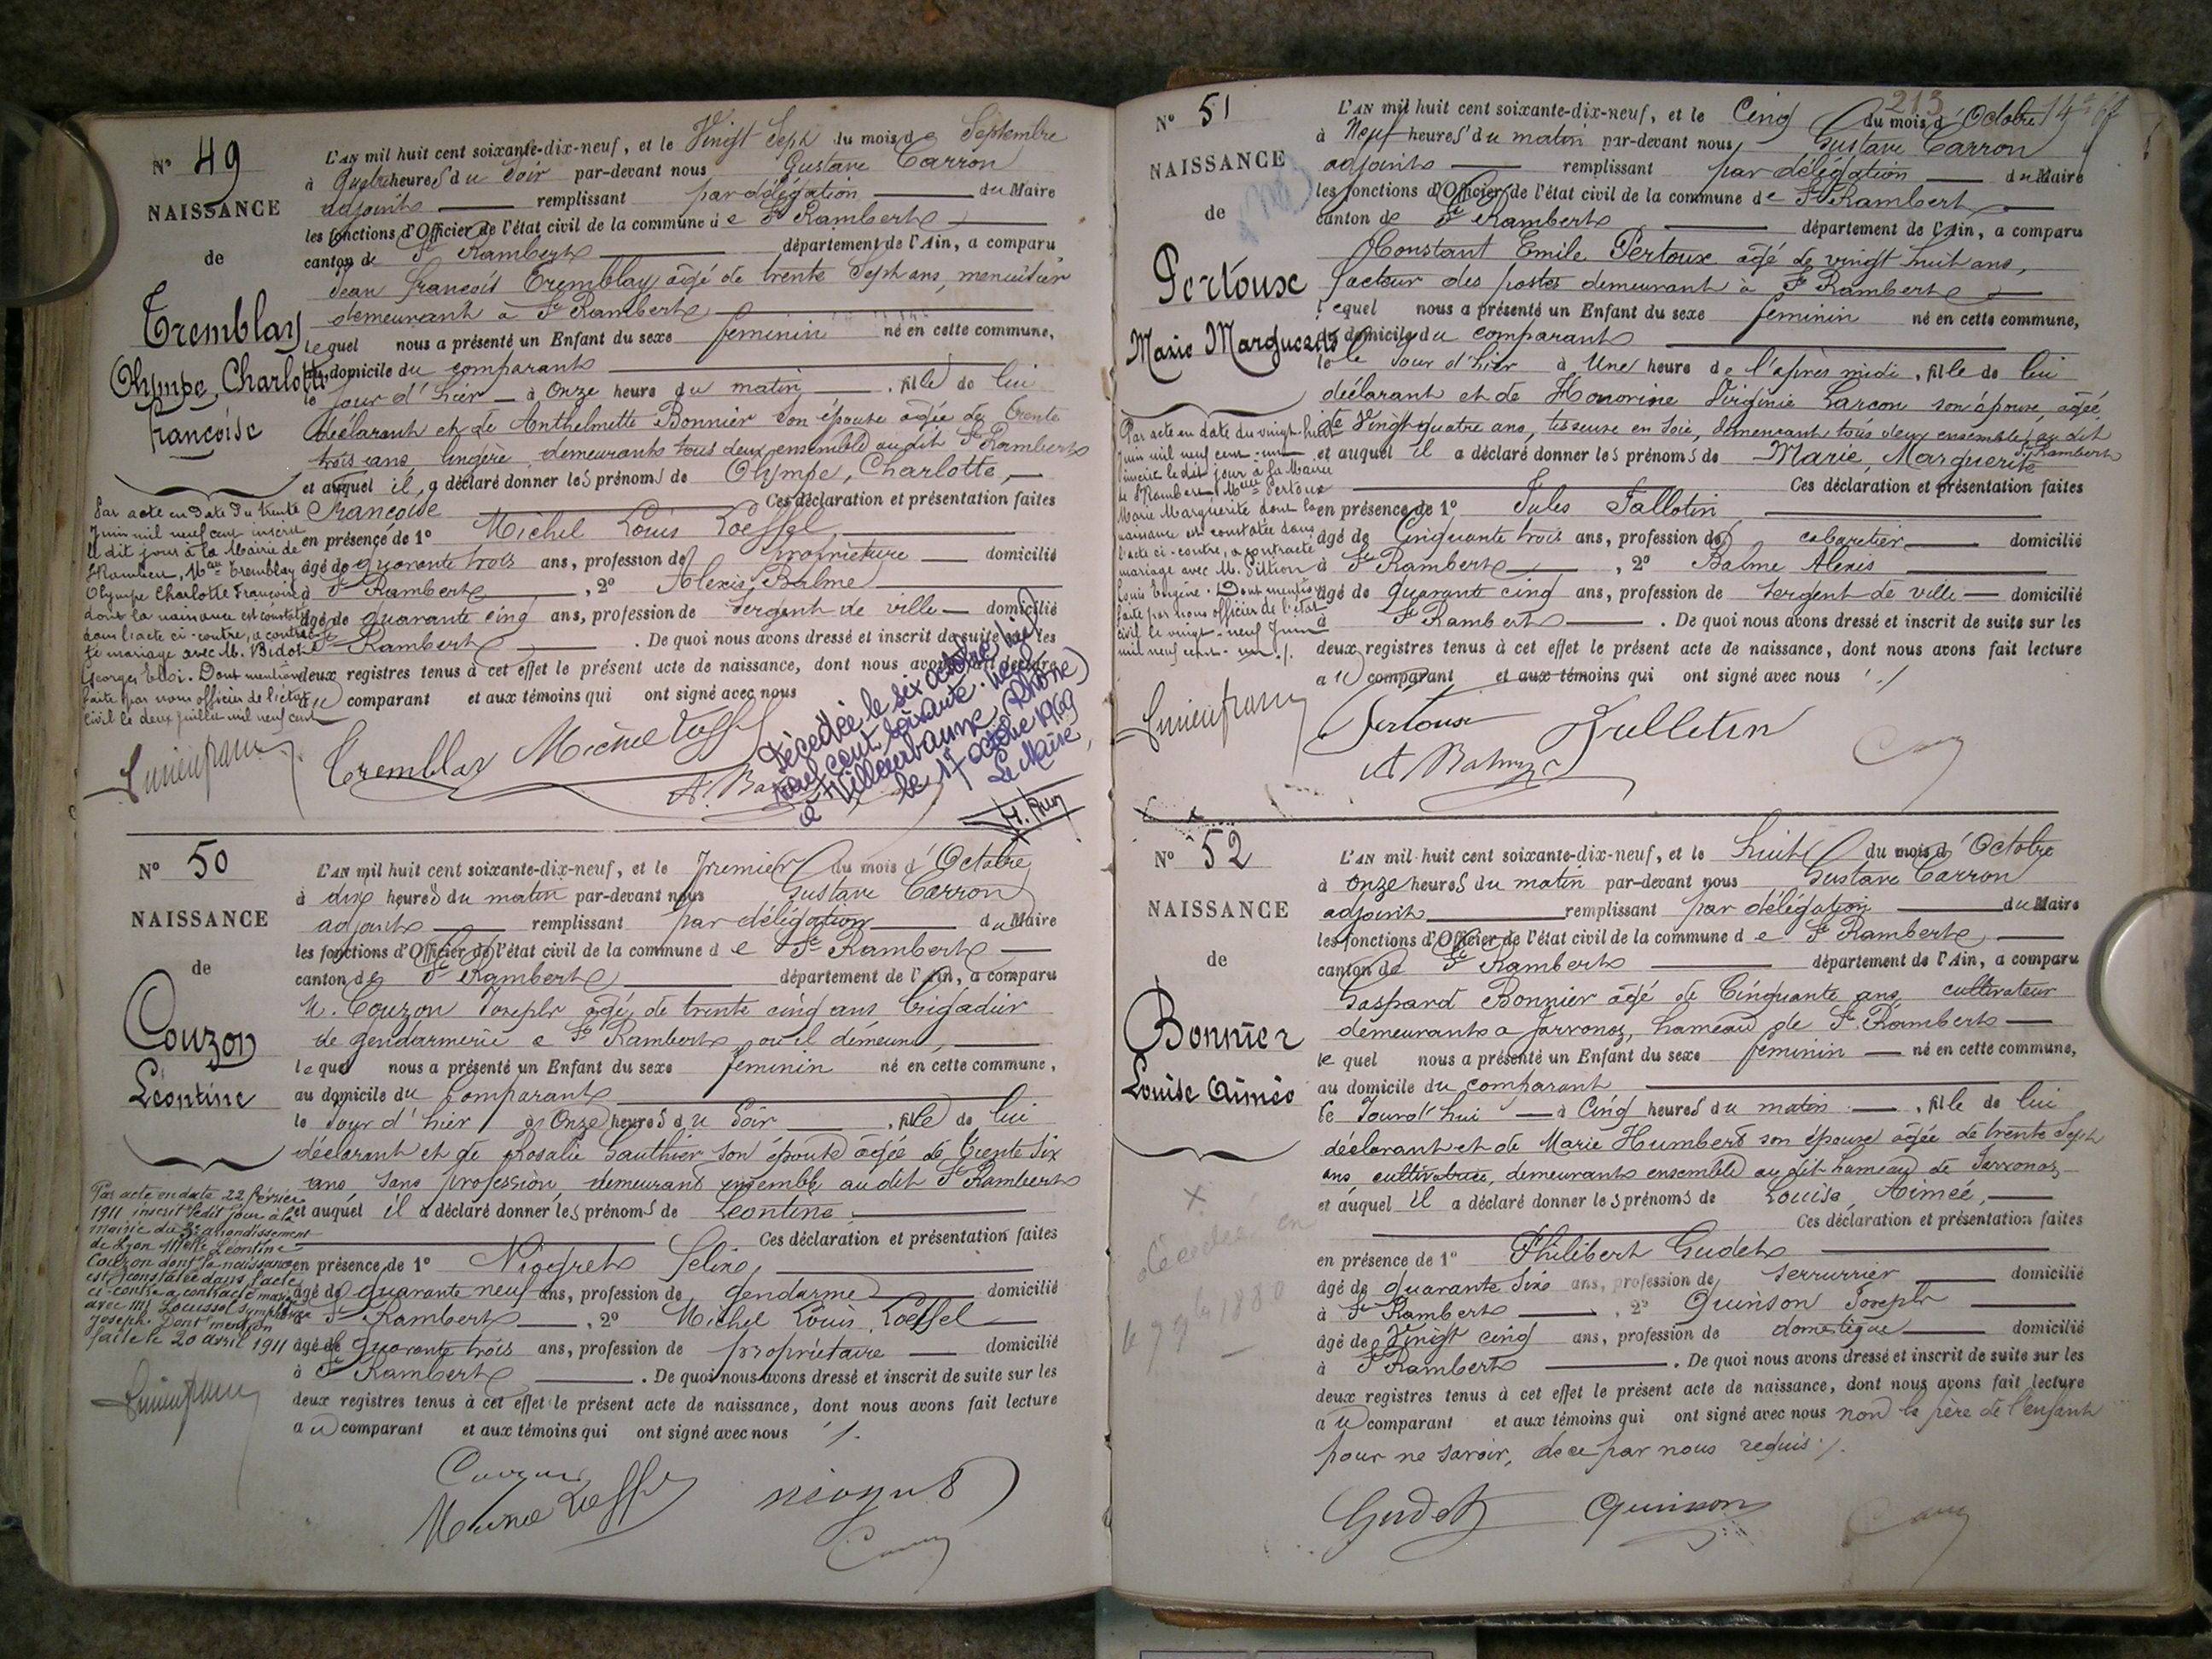 N° 49
NAISSANCE
de
Tremblay
Olympe, Charlotte
françoise
L'AN mil huit cent soixante-dix-neuf, et le Vingt Sept du mois de Septembre
à Quatre heures du Soir par-devant nous Gustave Carron
adjoint remplissant par délégation du Maire
les fonctions d'Officier de l'état civil de la commune de St Rambert
canton de St Rambert département de l'Ain, a comparu
Jean françois Tremblay âgé de trente Sept ans, menuisier
demeurant à St Rambert
lequel nous a présenté un Enfant du sexe feminin né en cette commune,
au domicile du comparant
le jour d'hier à Onze heure du matin, fille de lui
déclarant et de Anthelmette Bonnier son épouse âgée de trente
trois ans lingère, demeurants tous deux ensemble au dit St Rambert
et auquel il a déclaré donner les prénoms de Olympe, Charlotte,
françoise Ces déclaration et présentation faites
en présence de 1° Michel Louis Loeffel,
âgé de quarante trois ans, profession de propriétaire domicilié
à St Rambert, 2° Alexis Balme
âgé de quarante cinq ans, profession de Sergent de ville domicilié
à St Rambert. De quoi nous avons dressé et inscrit de suite sur les
deux registres tenus à cet effet le présent acte de naissance, dont nous avons fait lecture
au comparant et aux témoins qui ont signé avec nous
Par acte en date du trente
Juin mil neuf cent inscrit
le dit jour à la Mairie de
St Rambert, Melle Tremblay
Olympe Charlotte Françoise
dont la naissance est constatée
dans l'acte ci-contre, a contrac-
té mariage avec M. Bidot
Georges Eloi. Dont mention
faite par nous officier de l'état
civil le deux juillet mil neuf cent
Tremblay Michel Loeffel
A. Balme
Décédée le six octobre mil
neuf cent soixante-neuf
à Villeurbanne (Rhône)
le 17 octobre 1969
Le Maire,
N° 50
NAISSANCE
de
Couzon
Léontine
L'AN mil huit cent soixante-dix-neuf, et le Premier du mois d'Octobre
à dix heures du matin par-devant nous Gustave Carron
adjoint remplissant par délégation du Maire
les fonctions d'Officier de l'état civil de la commune de St Rambert
canton de St Rambert département de l'Ain, a comparu
M. Couzon Joseph âgé de trente cinq ans brigadier
de gendarmerie à St Rambert, où il demeure,
lequel nous a présenté un Enfant du sexe feminin né en cette commune,
au domicile du Comparant
le Jour d'hier à Onze heures du Soir, fille de lui
déclarant et de Rosalie Gauthier son épouse âgée de trente six
ans sans profession demeurant ensemble au dit St Rambert
et auquel il a déclaré donner les prénoms de Leontine,
Ces déclaration et présentation faites
en présence de 1° Niogret Felix,
âgé de quarante neuf ans, profession de gendarme domicilié
à St Rambert, 2° Michel Louis Loeffel
âgé de quarante trois ans, profession de propriétaire domicilié
à St Rambert. De quoi nous avons dressé et inscrit de suite sur les
deux registres tenus à cet effet le présent acte de naissance, dont nous avons fait lecture
au comparant et aux témoins qui ont signé avec nous
Par acte en date 22 février
1911 inscrit ledit jour à la
mairie du 3e arrondissement
de Lyon Melle Léontine
Couzon dont la naissance
est constatée dans l'acte
ci-contre a contracté mariage
avec M. Symphorien
Joseph. Dont mention
faite le 20 avril 1911
Couzon
Michel Loeffel Niogret
213
N° 51
NAISSANCE
de
Pertoux
Marie Marguerite
L'AN mil huit cent soixante-dix-neuf, et le Cinq du mois d'Octobre
à Neuf heures du matin par-devant nous Gustave Carron
adjoint remplissant par délégation du Maire
les fonctions d'Officier de l'état civil de la commune de St Rambert
canton de St Rambert département de l'Ain, a comparu
Constant Emile Pertoux âgé de vingt huit ans,
facteur des postes demeurant à St Rambert
lequel nous a présenté un Enfant du sexe feminin né en cette commune,
au domicile du comparant
le Jour d'hier à Une heure de l'après midi, fille de lui
déclarant et de Honorine Virginie Larcon son épouse, âgée
de Vingt quatre ans, tisseuse en soie, demeurant tous deux ensemble au dit
St Rambert
et auquel il a déclaré donner les prénoms de Marie, Marguerite
Ces déclaration et présentation faites
en présence de 1° Jules Tallotin
âgé de Cinquante trois ans, profession de cabaretier domicilié
à St Rambert, 2° Balme Alexis
âgé de quarante cinq ans, profession de Sergent de ville domicilié
à St Rambert. De quoi nous avons dressé et inscrit de suite sur les
deux registres tenus à cet effet le présent acte de naissance, dont nous avons fait lecture
au comparant et aux témoins qui ont signé avec nous
Par acte en date du vingt-huit
Juin mil neuf cent un
inscrit le dit jour à la Mairie
de St Rambert, Melle Pertoux
Marie Marguerite dont la
naissance est constatée dans
l'acte ci-contre, a contracté
mariage avec M. Pittion
Louis Eugène. Dont mention
faite par nous officier de l'état
civil le vingt-neuf Juin
mil neuf cent un
Pertoux
A Balme
N° 52
NAISSANCE
de
Bonnier
Louise Aimée
L'AN mil huit cent soixante-dix-neuf, et le huit du mois d'Octobre
à onze heures du matin par-devant nous Gustave Carron
adjoint remplissant par délégation du Maire
les fonctions d'Officier de l'état civil de la commune de St Rambert
canton de St Rambert département de l'Ain, a comparu
Gaspard Bonnier âgé de Cinquante ans cultivateur
demeurant à Javronoz, hameau de St Rambert
lequel nous a présenté un Enfant du sexe feminin né en cette commune,
au domicile du comparant
le Jourd'hui à Cinq heures du matin, fille de lui
déclarant et de Marie Humbert son épouse âgée de trente Sept
ans cultivatrice, demeurants ensemble au dit hameau de Javronoz
et auquel il a déclaré donner les prénoms de Louise, Aimée,
Ces déclaration et présentation faites
en présence de 1° Philibert Gudet
âgé de quarante Six ans, profession de Serrurrier domicilié
à St Rambert, 2° Quinson Joseph
âgé de Vingt cinq ans, profession de domestique domicilié
à St Rambert. De quoi nous avons dressé et inscrit de suite sur les
deux registres tenus à cet effet le présent acte de naissance, dont nous avons fait lecture
au comparant et aux témoins qui ont signé avec nous non le père de l'enfant
pour ne savoir, de ce par nous requis
Décédée en
1880
Gudet Quinson